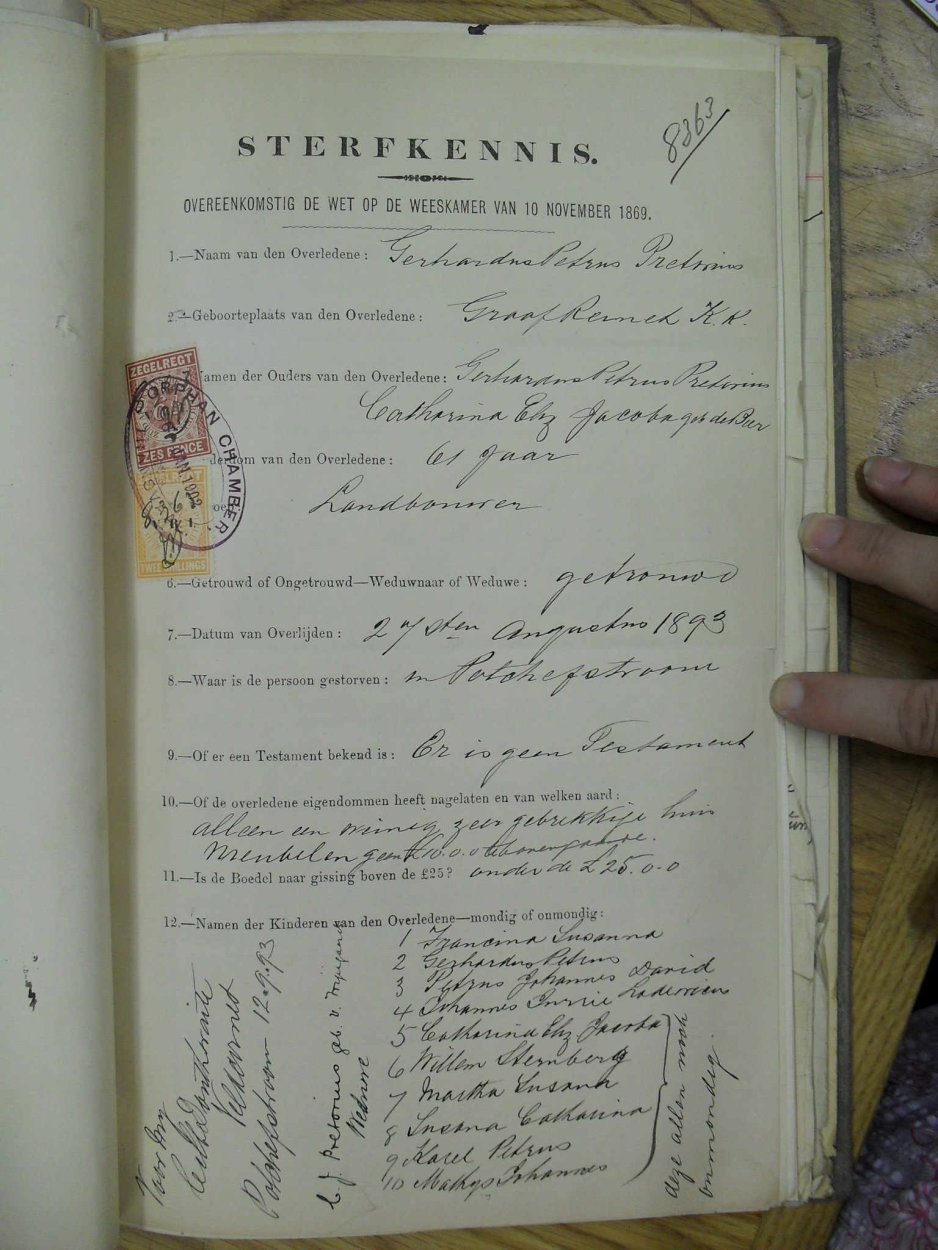 8363
STERFKENNIS.
OVEREENKOMSTIG DE WET OP DE WEESKAMER VAN 10 NOVEMBER 1869.
1.—Naam van den Overledene: Gerhardus Petrus Pretorius
2.—Geboorteplaats van den Overledene: Graaf Reinet K. K.
Namen der Ouders van den Overledene: Gerhardus Petrus Pretorius
Catharina Eliz Jacoba geb de Beer
derdom van den Overledene: 61 Jaar
Landbouwer
6.—Getrouwd of Ongetrouwd—Weduwnaar of Weduwe: getrouwd
7.—Datum van Overlijden: 27sten Augustus 1893
8.—Waar is de persoon gestorven: in Potchefstroom
9.—Of er een Testament bekend is: Er is geen Testament
10.—Of de overledene eigendommen heeft nagelaten en van welken aard:
alleen een weinig zeer gebrekkige huis
meubelen geen £10.0.0 te bovengaande.
11.—Is de Boedel naar gissing boven de £25? onder de £25.0-0
12.—Namen der Kinderen van den Overledene—mondig of onmondig:
1 Francina Susanna
2 Gerhardus Petrus
3 Petrus Johannes David
4 Johannes Lodewicus
5 Catharina Eliz Jacoba
6 Willem Sternberg
7 Martha Susana
8 Susana Catharina
9 Karel Petrus
10 Mathys Johannes
deze allen nog
onmondig.
C. J. Pretorius geb. v.
Weduwe
Voor mij
Veldcornet
Potchefstroom 12-9-93
ZEGELREGT
ZES PENCE
TWEE SHILLINGS
ORPHAN CHAMBER